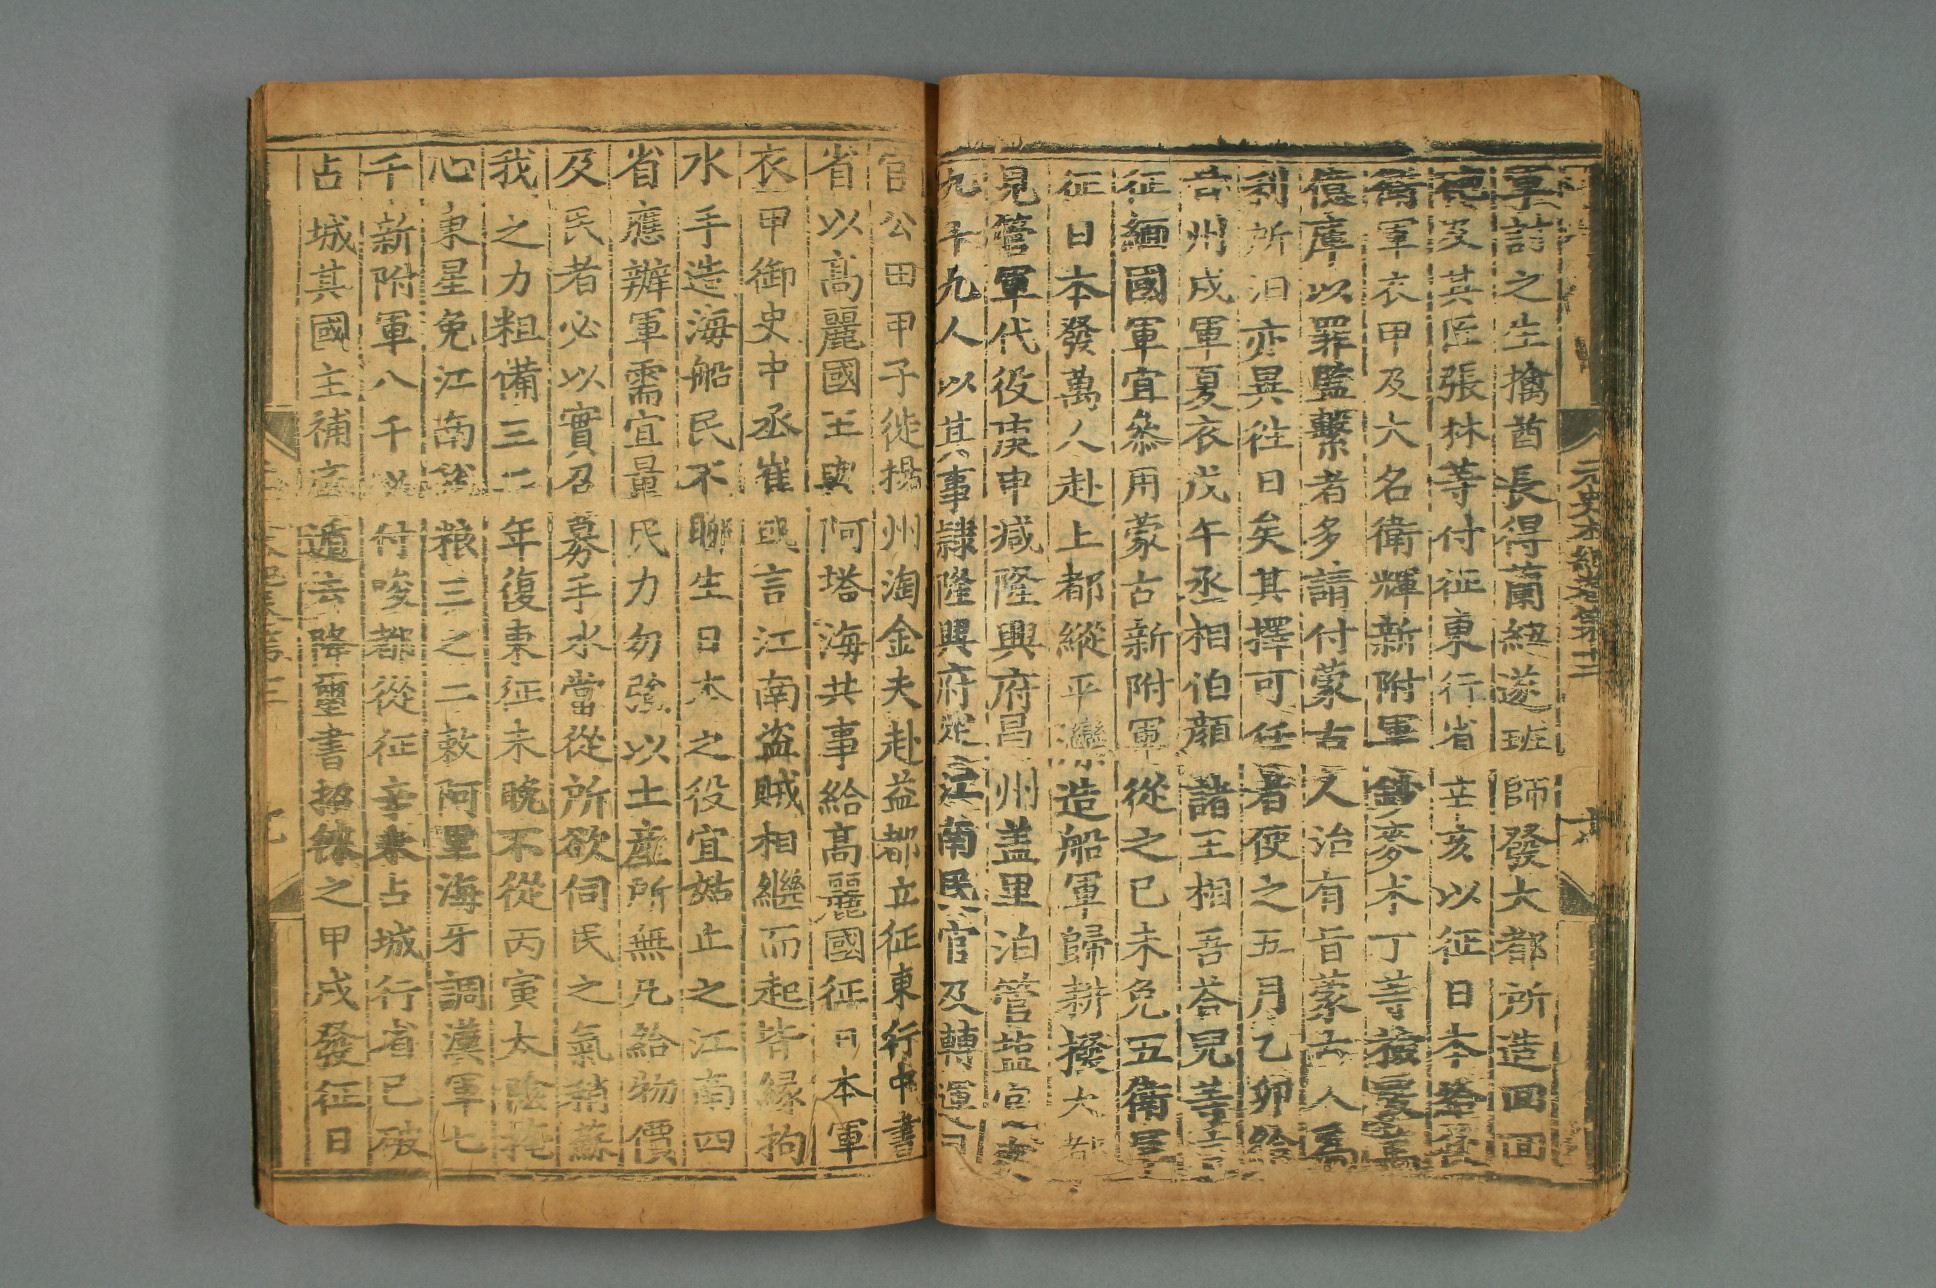 元史本紀卷第十二
軍討之生擒酋長得蘭紐遂班師發大都所造回回
砲及其匠張林等付征東行省辛亥以征日本給後
衛軍衣甲及大名衛輝新附軍鈔麥朮丁等檢覈萬
億庫以罪監繫者多請付蒙古人治有旨蒙古人為
利所汩亦異往日矣其擇可任者使之五月乙卯給
甘州戍軍夏衣戊午丞相伯顏諸王相吾荅兒等言
征緬國軍宜參用蒙古新附軍從之已未免五衛軍
征日本發萬人赴上都縱平灤造船軍歸耕撥大都
見管軍代役庚申減隆興府昌州盖里泊管鹽官吏
九十九人以其事隸隆興府定江南民官及轉運司
官公田甲子徙揚州淘金夫赴益都立征東行中書
省以高麗國王與阿塔海共事給高麗國征日本軍
衣甲御史中丞崔彧言江南盜賊相繼而起皆緣拘
水手造海船民不聊生日本之役宜姑止之江南四
省應辦軍需宜量民力勿強以土產所無凡給物價
及民者必以實召募手水當從所欲伺民之氣稍蘇
我之力粗備三二年復東征未晚不從丙寅太陰掩
心東星免江南稅粮三之二敕阿里海牙調漢軍七
千新附軍八千以付唆都從征辛未占城行省已破
占城其國主補底遁去降璽書招徠之甲戌發征日